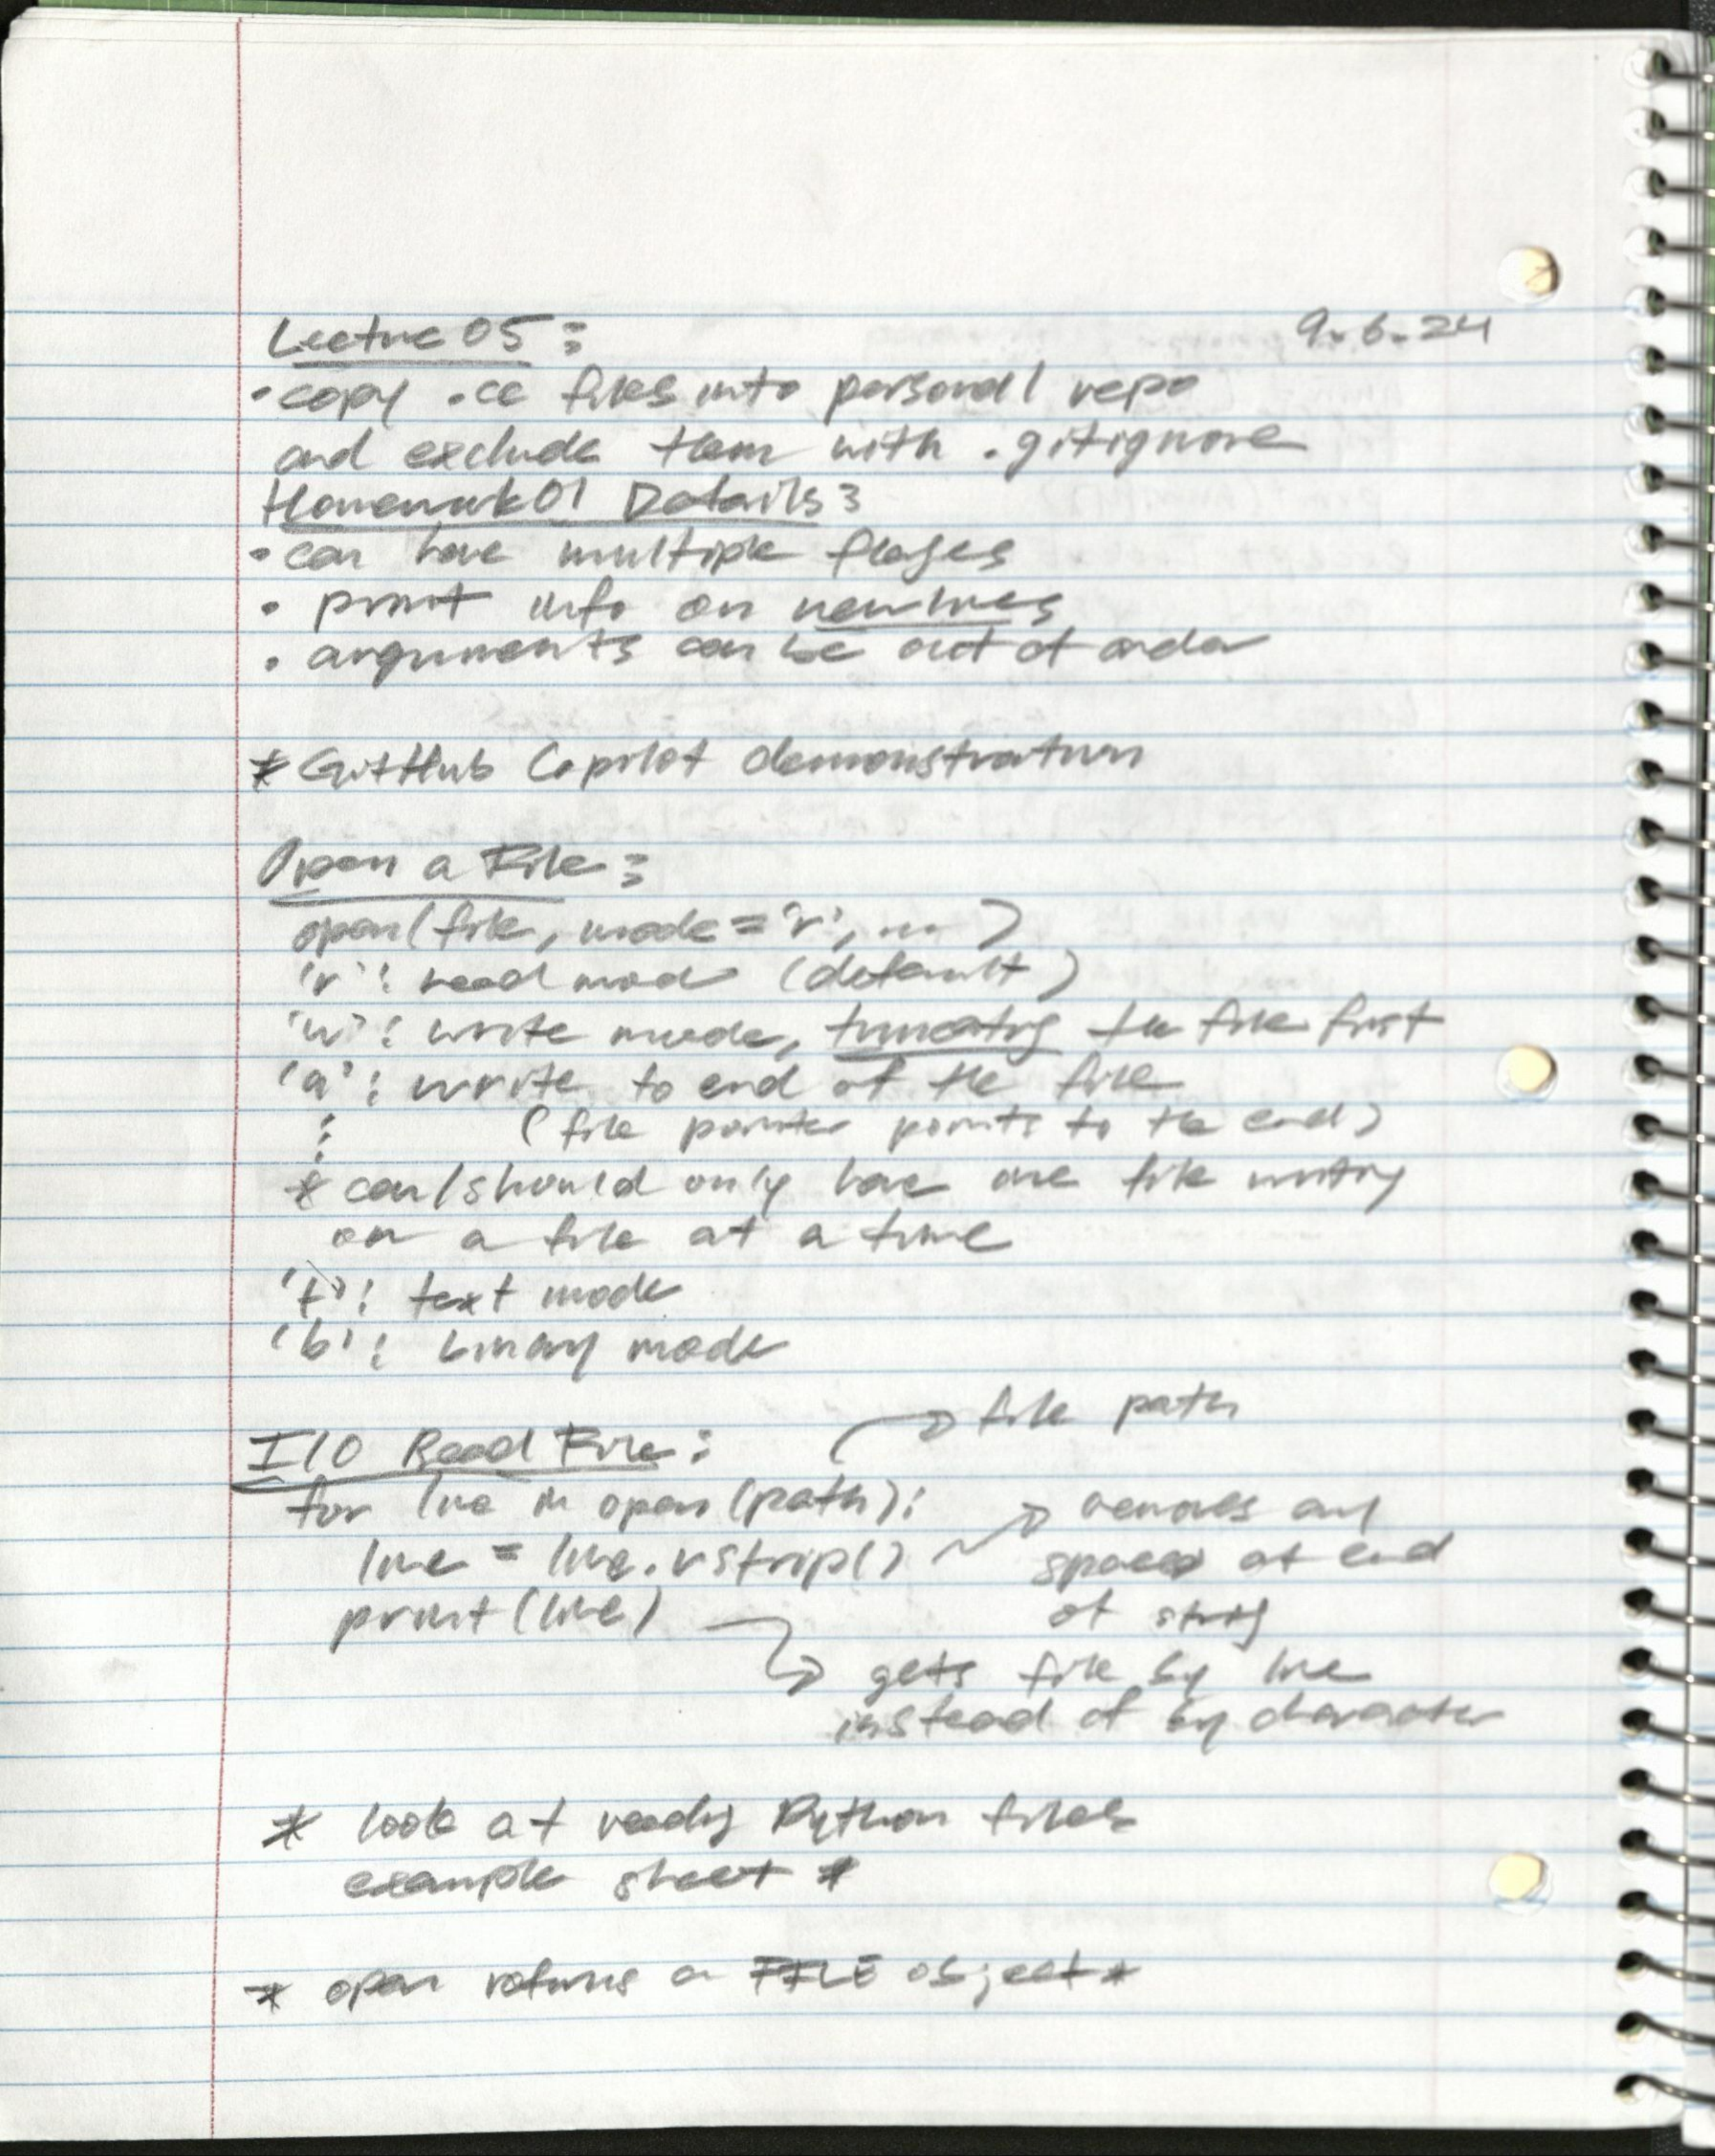 Lecture 05:
9.6.24
• copy .cc files into personal repo
and exclude them with .gitignore
Homework01 Details:
• can have multiple flages
• print info on newlines
• arguments can be out of order
* GitHub Copilot demonstration
Open a File:
open(file, mode='r', ...)
'r': read mode (default)
'w': write mode, truncating the file first
'a': write to end of the file
⋮ (file pointer points to the end)
* can/should only have one file writing
on a file at a time
't': text mode
'b': binary mode
→ file path
I/O Read File:
for line in open(path):
→ removes any
line = line.rstrip()
spaces at end
print(line)
of string
→ gets file by line
instead of by character
* look at reading Python files
example sheet *
* open returns a FILE object *